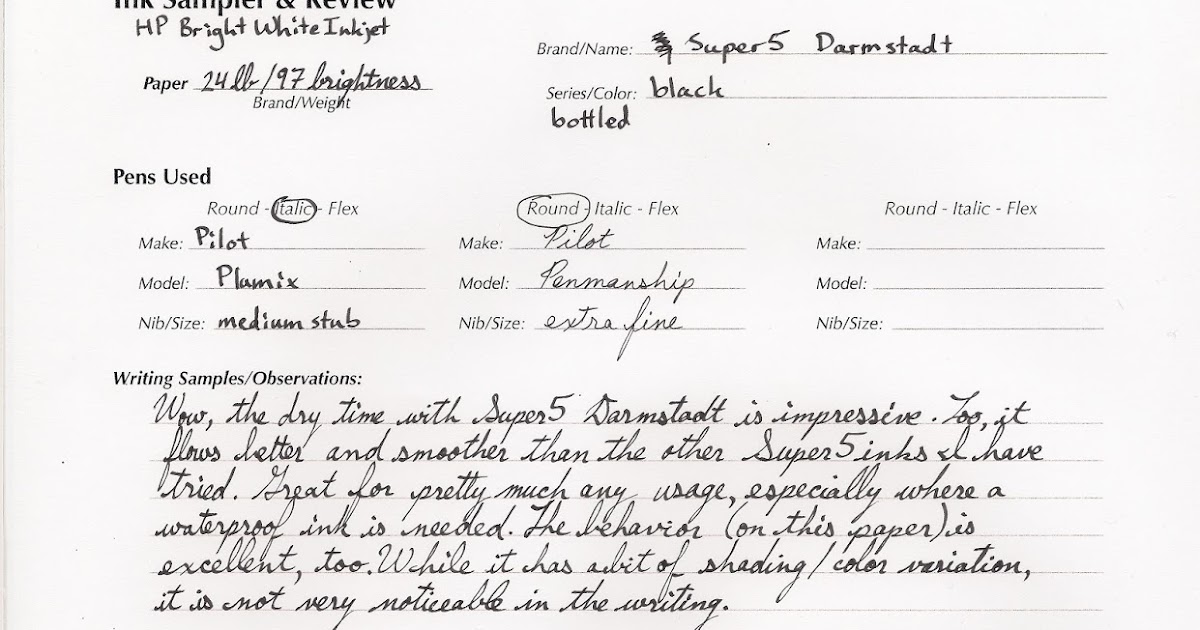 Ink Sampler & Review
HP Bright White Inkjet
Brand/Name: Super5 Darmstadt
Paper 24 lb/97 brightness
Brand/Weight
Series/Color: black
bottled
Pens Used
Round - Italic - Flex
Round - Italic - Flex
Round - Italic - Flex
Make: Pilot
Make: Pilot
Make:
Model: Plumix
Model: Penmanship
Model:
Nib/Size: medium stub
Nib/Size: extra fine
Nib/Size:
Writing Samples/Observations:
Wow, the dry time with Super5 Darmstadt is impressive. Too, it
flows better and smoother than the other Super5 inks I have
tried. Great for pretty much any usage, especially where a
waterproof ink is needed. The behavior (on this paper) is
excellent, too. While it has a bit of shading/color variation,
it is not very noticeable in the writing.